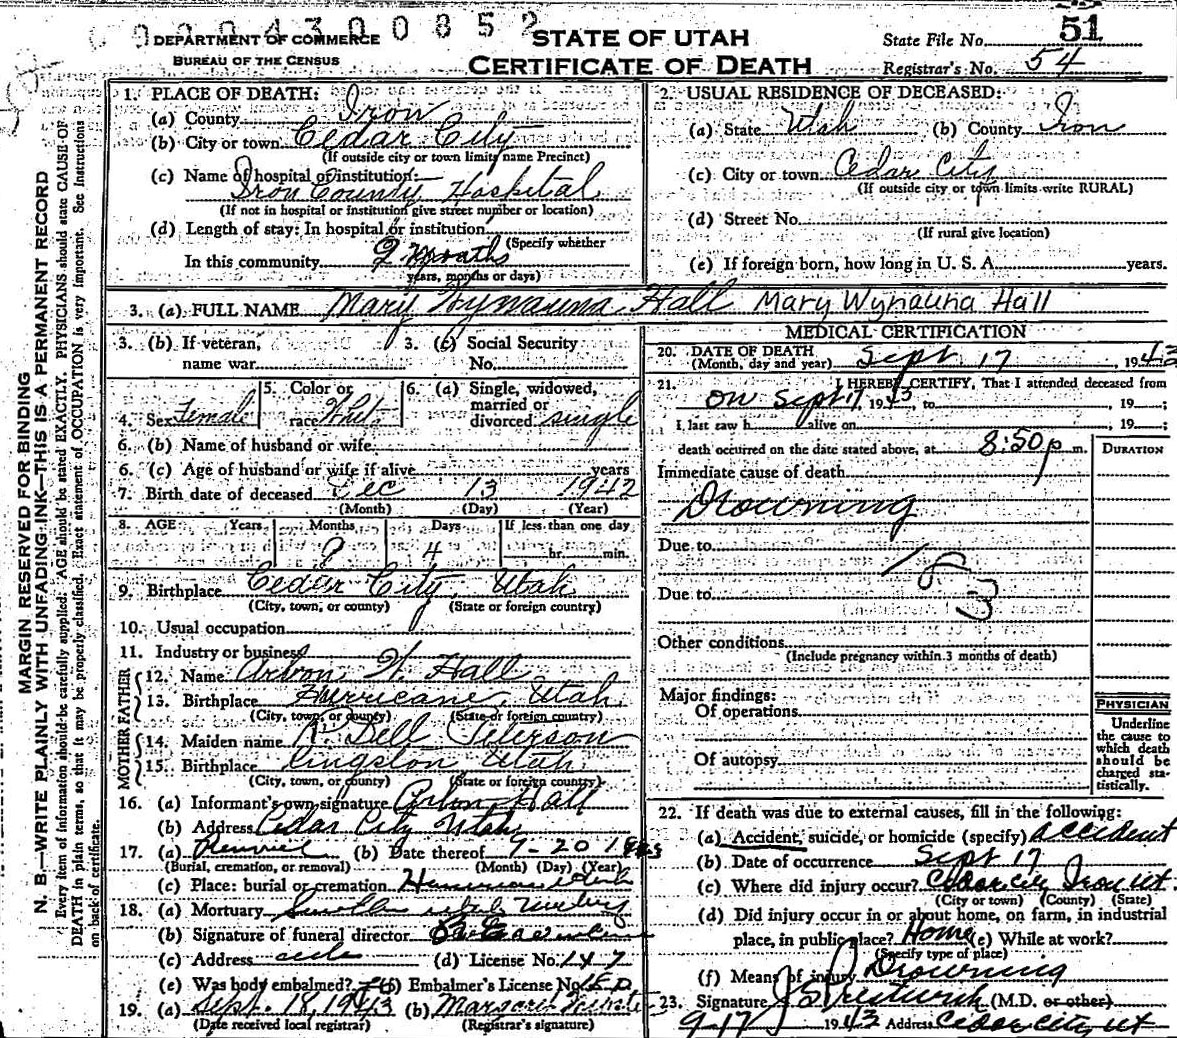 0 0 4 3 0 0 8 5 2
DEPARTMENT OF COMMERCE
BUREAU OF THE CENSUS
STATE OF UTAH
CERTIFICATE OF DEATH
State File No. 51
Registrar's No. 54
MARGIN RESERVED FOR BINDING
N. B.—WRITE PLAINLY WITH UNFADING INK—THIS IS A PERMANENT RECORD
Every item of information should be carefully supplied. AGE should be stated EXACTLY. PHYSICIANS should state CAUSE OF
DEATH in plain terms, so that it may be properly classified. Exact statement of OCCUPATION is very important. See Instructions
on back of certificate.
1. PLACE OF DEATH:
(a) County Iron
(b) City or town Cedar City
(If outside city or town limits name Precinct)
(c) Name of hospital or institution:
Iron County Hospital
(If not in hospital or institution give street number or location)
(d) Length of stay: In hospital or institution
(Specify whether
In this community 9 Months
years, months or days)
2. USUAL RESIDENCE OF DECEASED:
(a) State Utah (b) County Iron
(c) City or town Cedar City
(If outside city or town limits write RURAL)
(d) Street No.
(If rural give location)
(e) If foreign born, how long in U. S. A. years.
3. (a) FULL NAME Mary Wynauna Hall Mary Wynauna Hall
3. (b) If veteran, name war
3. (c) Social Security No.
4. Sex Female
5. Color or race Whit
6. (a) Single, widowed, married or divorced single
6. (b) Name of husband or wife
6. (c) Age of husband or wife if alive years
7. Birth date of deceased Dec 13 1942
(Month) (Day) (Year)
8. AGE Years Months Days If less than one day
9 4 hr. min.
9. Birthplace Cedar City, Utah
(City, town, or county) (State or foreign country)
10. Usual occupation
11. Industry or business
FATHER
12. Name Arbon W. Hall
13. Birthplace Hurricane, Utah
(City, town, or county) (State or foreign country)
MOTHER
14. Maiden name Dell Peterson
15. Birthplace Kingston Utah
(City, town, or county) (State or foreign country)
16. (a) Informant's own signature Arbon Hall
(b) Address Cedar City Utah
17. (a) (b) Date thereof 9-20 19
(Burial, cremation, or removal) (Month) (Day) (Year)
(c) Place: burial or cremation
18. (a) Mortuary
(b) Signature of funeral director
(c) Address (d) License No.
(e) Was body embalmed? (f) Embalmer's License No.
19. (a) Sept. 18, 1943 (b)
(Date received local registrar) (Registrar's signature)
MEDICAL CERTIFICATION
20. DATE OF DEATH
(Month, day and year) Sept 17, 1943
21. I HEREBY CERTIFY, That I attended deceased from
on Sept 17, 1943, to , 19 ;
I last saw h alive on , 19 ;
death occurred on the date stated above, at 8:50 p m.
DURATION
Immediate cause of death
Drowning
Due to
183
Due to
Other conditions
(Include pregnancy within 3 months of death)
Major findings:
Of operations
Of autopsy
PHYSICIAN
Underline
the cause to
which death
should be
charged sta-
tistically.
22. If death was due to external causes, fill in the following:
(a) Accident, suicide, or homicide (specify) Accident
(b) Date of occurrence Sept 17
(c) Where did injury occur? Cedar City Iron Ut.
(City or town) (County) (State)
(d) Did injury occur in or about home, on farm, in industrial
place, in public place? Home (e) While at work?
(Specify type of place)
(f) Means of injury Drowning
23. Signature (M.D. or other)
9-17 1943 Address Cedar City Ut